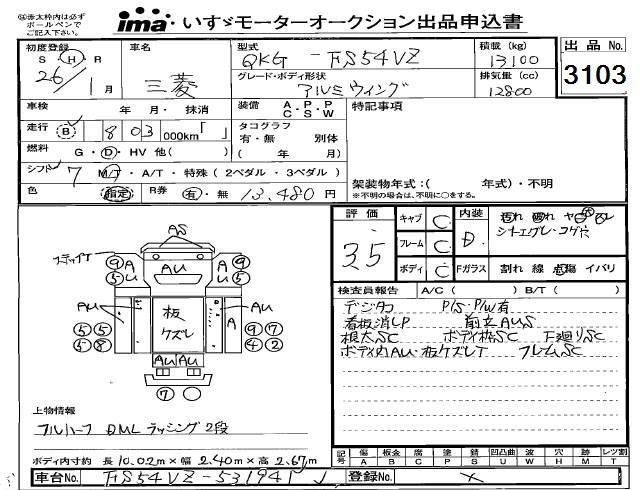 ㊟赤太枠内は必ず
ボールペンで
ご記入下さい。
ima いすゞモーターオークション出品申込書
出品 No.
3103
初度登録
S H R
26 / 1月
車名
三菱
型式
QKG - FS54VZ
グレード・ボディ形状
アルミウィング
積載 (kg)
13100
排気量 (cc)
12800
車検 年・月・抹消
走行 B 803 000km「 」
燃料 G・D・HV 他( )
シフト 7 M/T・A/T・特殊(2ペダル・3ペダル)
色 指定 R券 有・無 13,480円
装備 A.P.P
C S W
タコグラフ
有・無 別体
( 年 月)
特記事項
架装物年式:( 年式)・不明
※不明の場合は、不明に○をする。
評価 3.5
キャブ C
フレーム C
ボディ C
内装 D
シート・エグレ・コゲ穴
Fガラス 割れ 線 点傷 イバリ
検査員報告 A/C( ) B/T( )
デジタコ P/S・P/W有
看板消しP 前立AUS
根太SC ボディ枠SC 下廻りSC
ボディ内AU・板ケズレT フレームSC
AS
⑨ A ⑤ U
AU
A ⑨ U ⑤
AU
板
ケズレ
AU
A
⑤ ⑤
⑤ ⑧
⑨ ⑦
④ ②
AU AU
⑦
上物情報
フルハーフ DML ラッシング 2段
ボディ内寸約 長 10.02m×幅 2.40m×高 2.67m
記号 傷 A 板金 B 腐 C 塗 P 錆 S 凹凸曲 U 波 W 穴 H 跡 M レツ割 T
車台No. FS54VZ-531941
登録No. ×